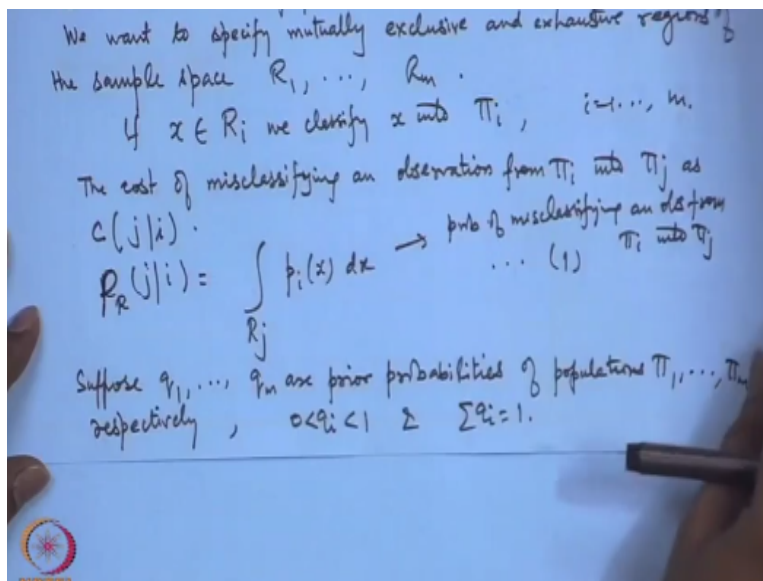 We want to specify mutually exclusive and exhaustive regions of
the sample space R₁, ..., Rₘ.
If x ∈ Rᵢ we classify x into Πᵢ, i=1..., m.
The cost of misclassifying an observation from Πᵢ into Πⱼ as
C(j|i).
P_R(j|i) = ∫_{Rⱼ} pᵢ(x) dx → prob of misclassifying an obs from
... (1) Πᵢ into Πⱼ
Suppose q₁, ..., qₘ are prior probabilities of populations Π₁, ..., Πₘ
respectively, 0<qᵢ<1 Σ Σqᵢ=1.